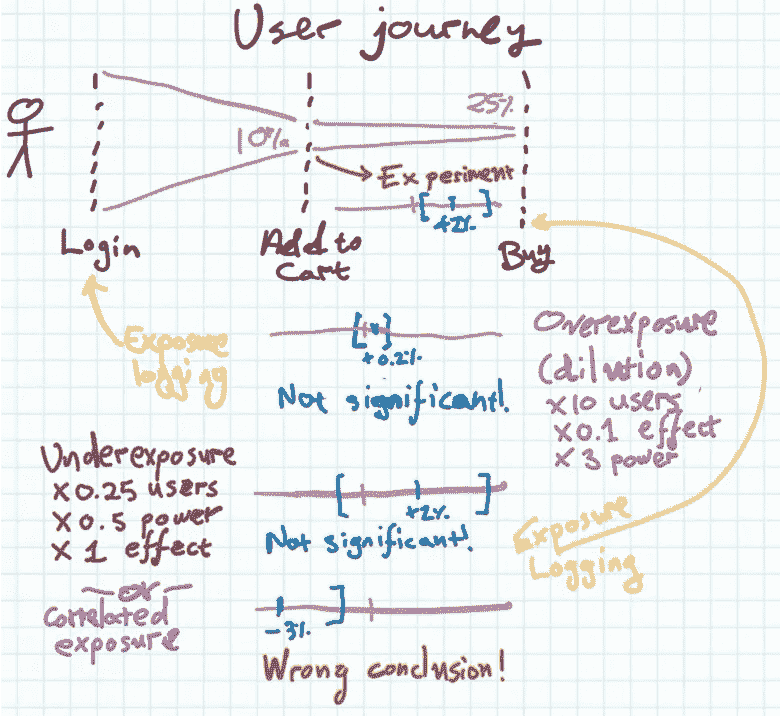 User journey
25%
10%
Experiment
+2%
Login
Add to
Cart
Buy
Exposure
logging
+0.2%
Not significant!
Overexposure
(dilution)
x10 users
x0.1 effect
x3 power
Underexposure
x0.25 users
x0.5 power
x1 effect
+2%
Not significant!
Exposure
Logging
or
Correlated
exposure
-3%
Wrong conclusion!